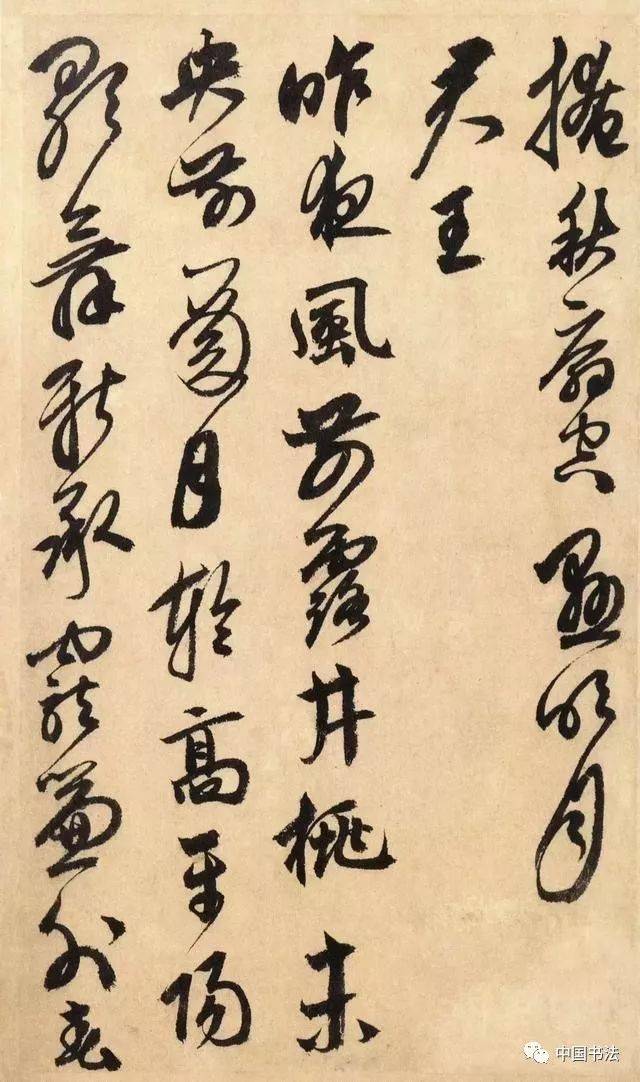 掩秋扇空懸明月
君王
昨夜風開露井桃未
央前殿月輪高平陽
歌舞新承寵簾外春
中国书法